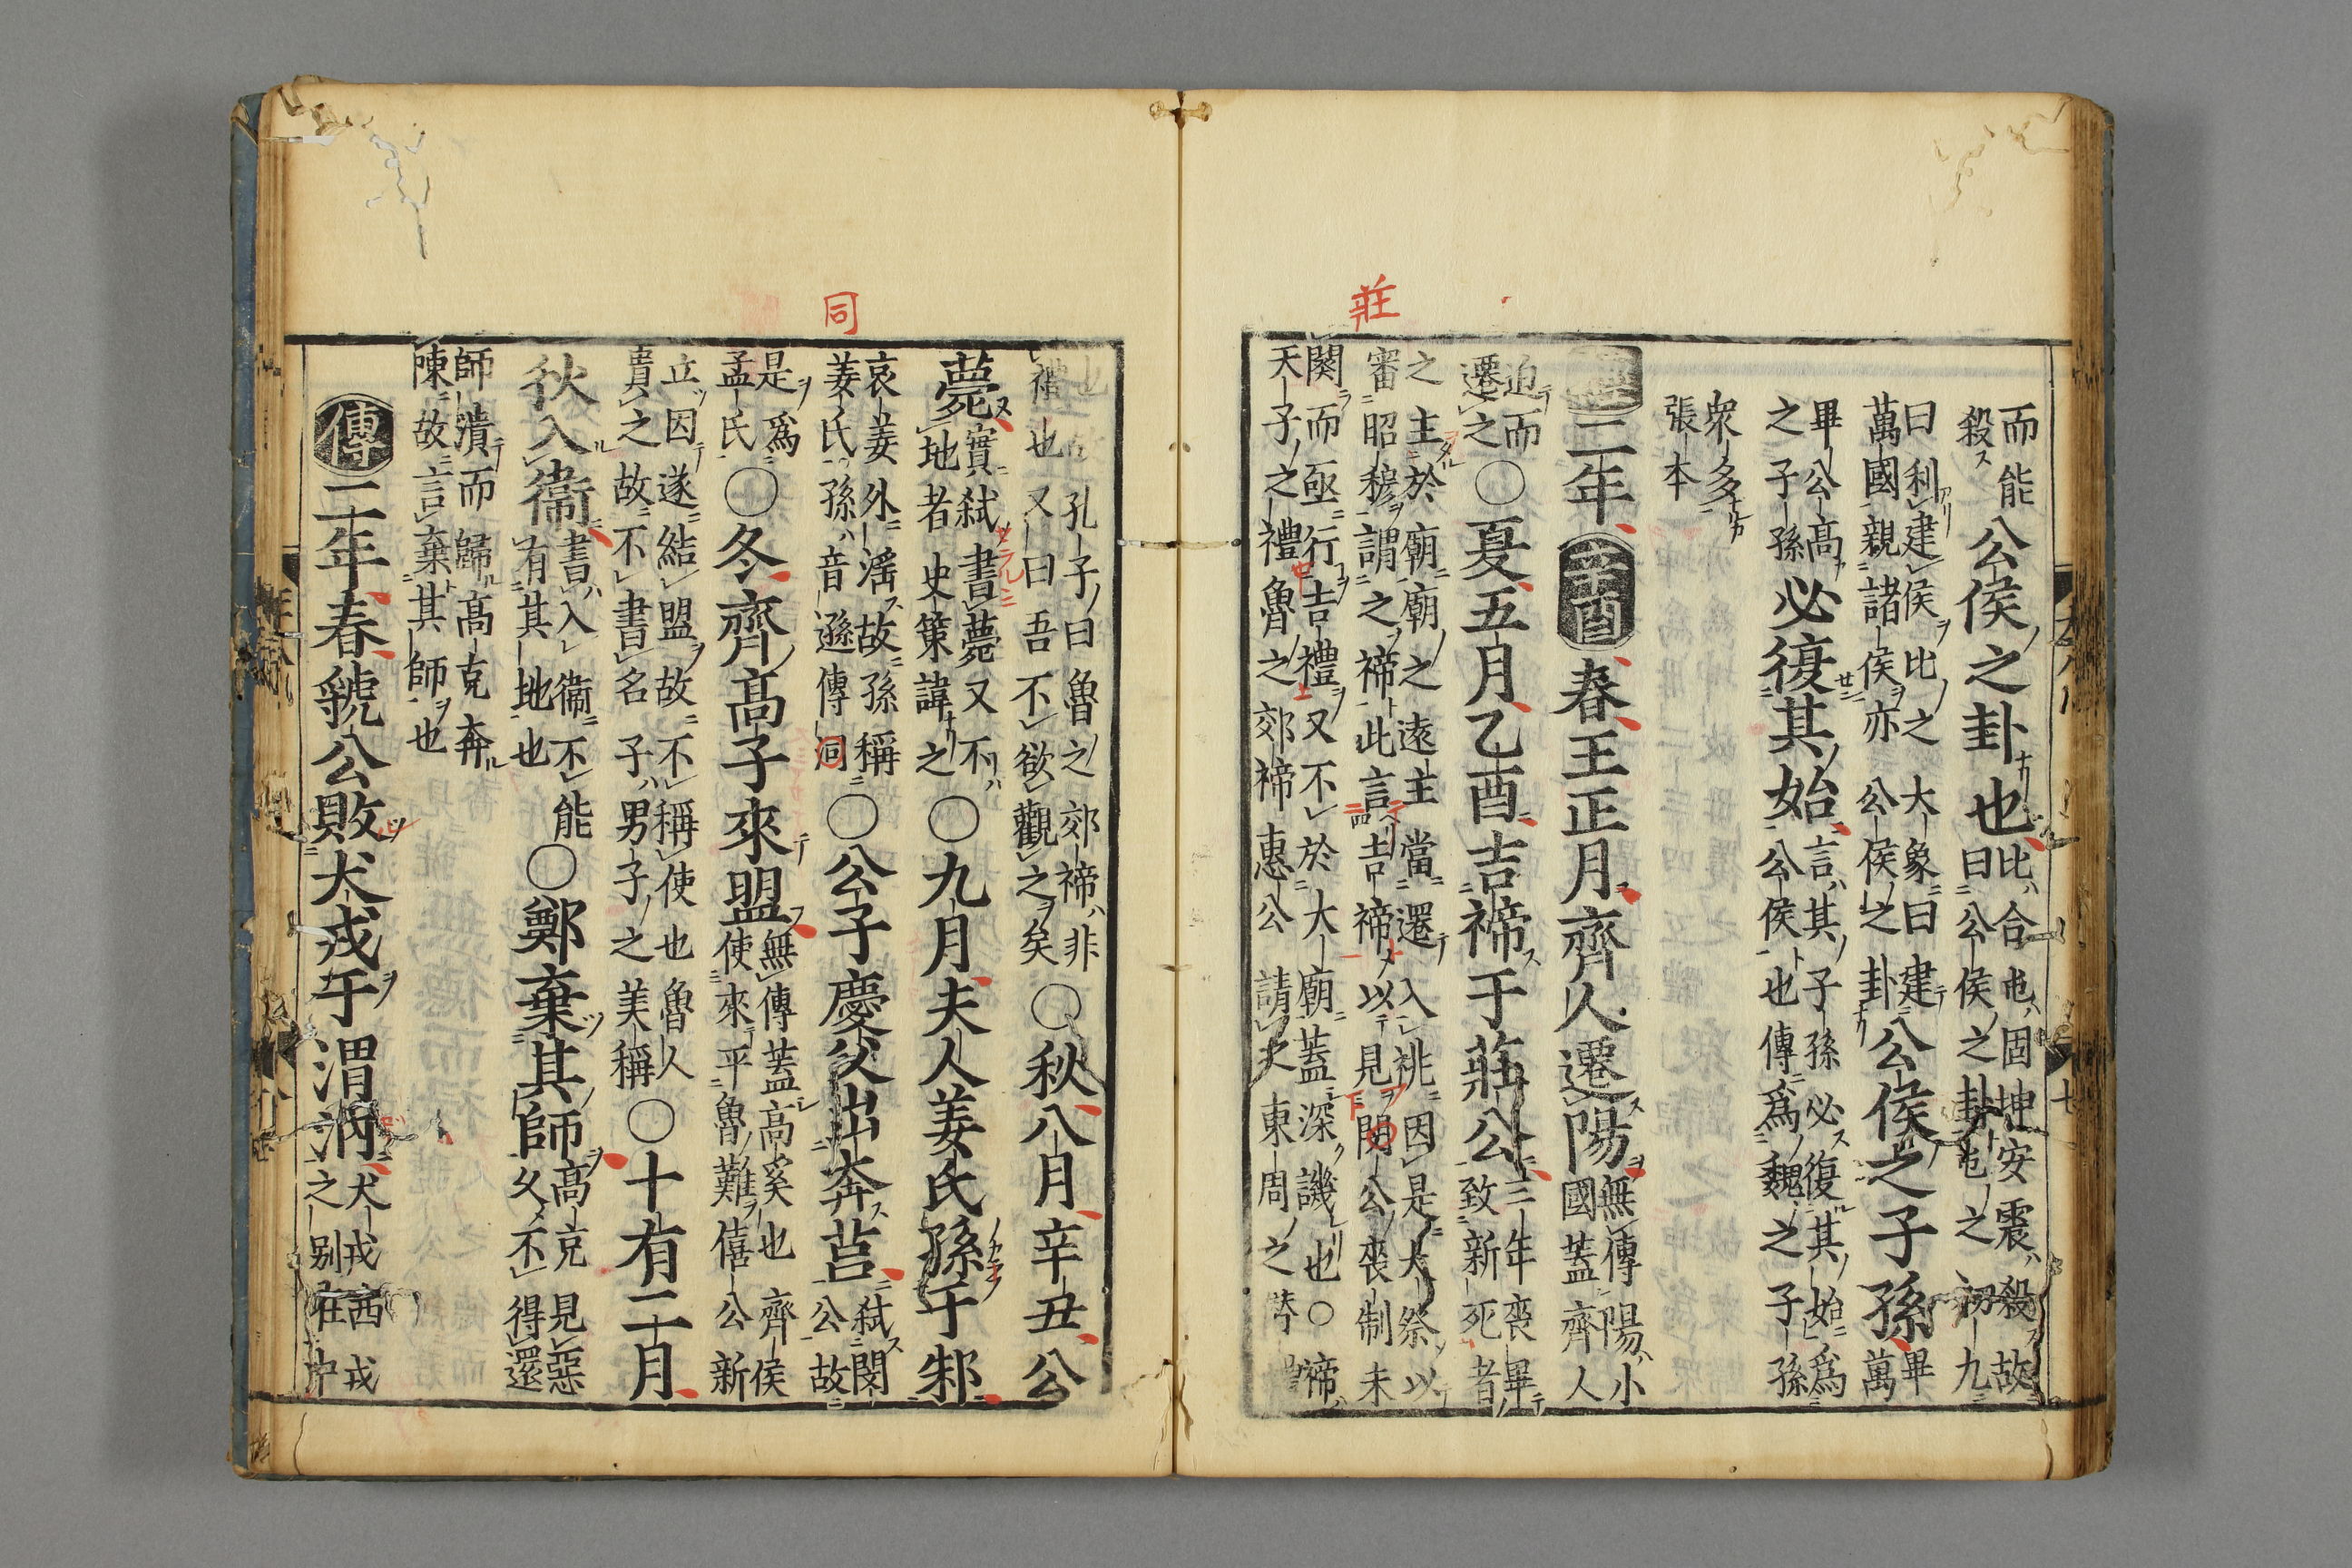 莊
而能公侯之卦也比合屯固坤安震殺故
殺曰公侯之卦屯之初九
曰利建侯比之大象曰建公侯之子孫畢
萬國親諸侯亦公侯之卦萬
畢公高必復其始言其子孫必復其始爲
之子孫公侯也傳爲魏之子孫
衆多
張本
二年辛酉春王正月齊人遷陽無傳陽小
國蓋齊人
迫而
遷之○夏五月乙酉吉禘于莊公三年喪畢
致新死者
之主於廟廟之遠主當遷入祧因是大祭以
審昭穆謂之禘此言吉禘以見閔公喪制未
闋而亟行吉禮又不於大廟蓋深譏也○禘
天子之禮魯之郊禘惠公請 東周之
禮也孔子曰魯之郊禘非
又曰吾不欲觀之矣○秋八月辛丑公
同
薨實弑書薨又不
地者史策諱之○九月夫人姜氏孫于邾
哀姜外滛故孫稱
姜氏孫音遜傳同○公子慶父出奔莒弑閔
公故
是爲
孟氏○冬齊高子來盟無傳蓋高奚也齊侯
使來平魯難僖公新
立因遂結盟故不稱使也魯人
貴之故不書名子男子之美稱○十有二月
秋入衞書入衞不能
有其地也○鄭棄其師高克見惡
久不得還
師潰而歸高克奔
陳故言棄其師也
傳二年春虢公敗犬戎于渭汭犬戎西戎
之别在中